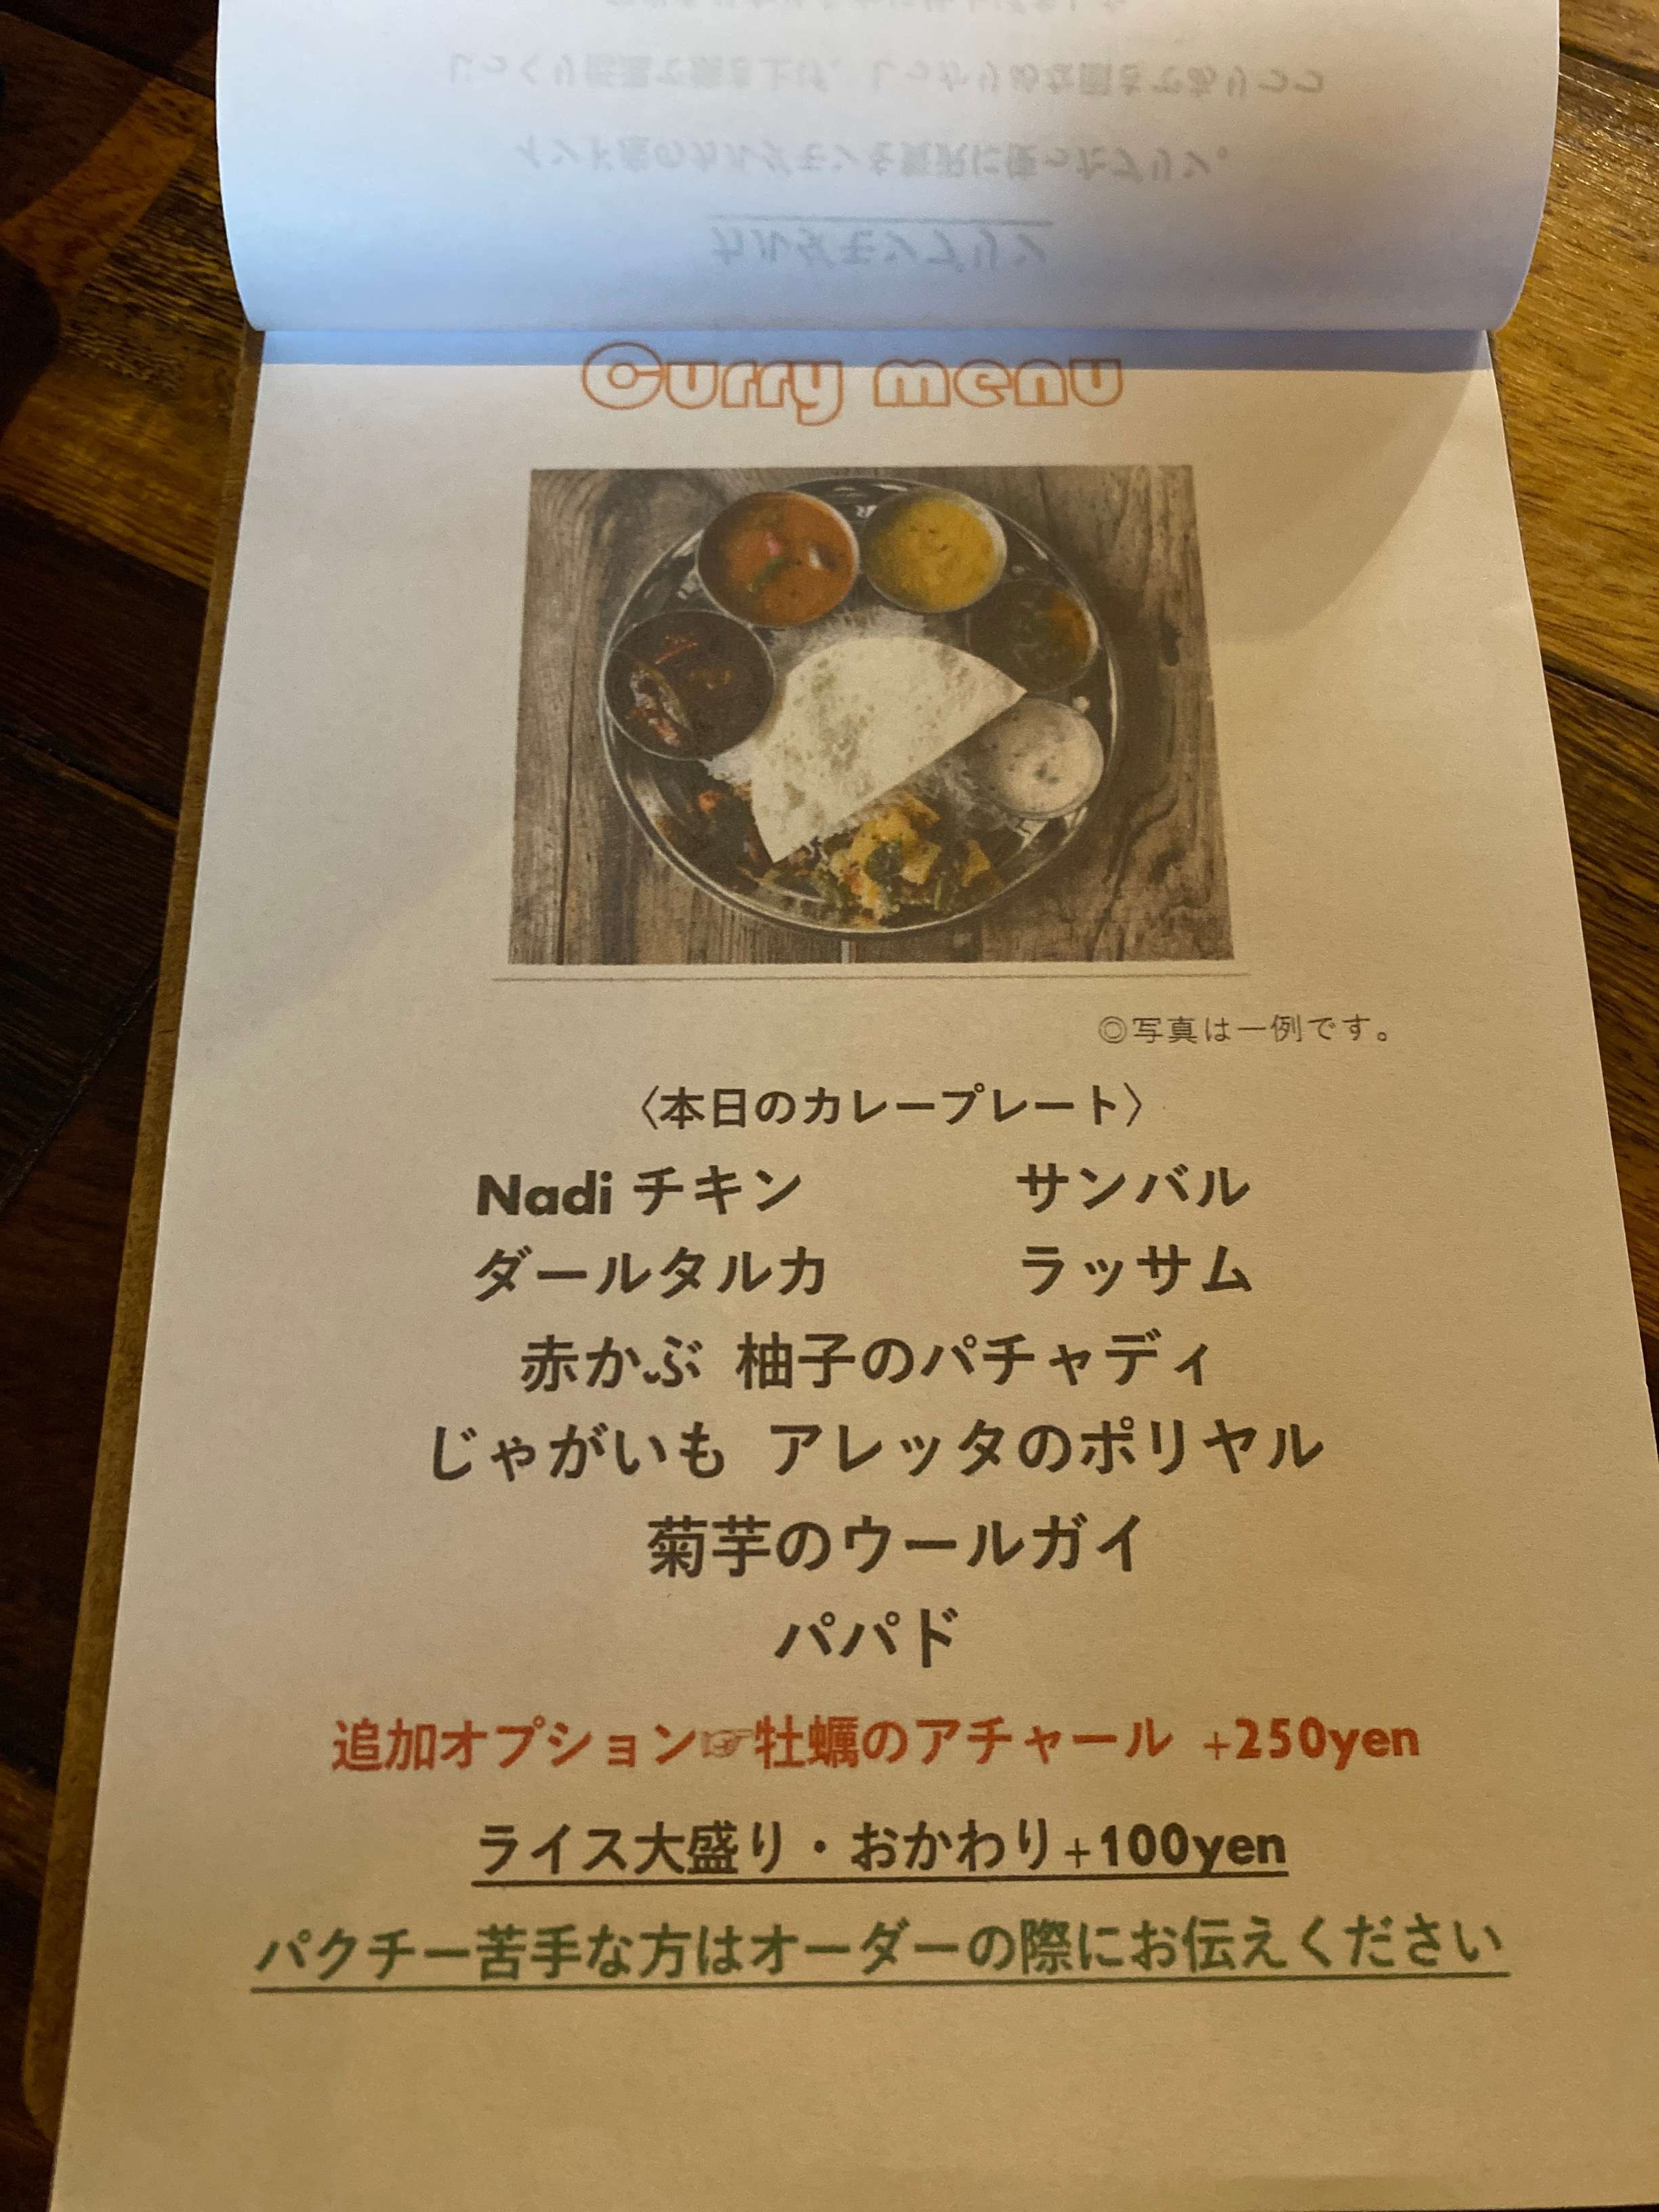 Curry menu
◎写真は一例です。
〈本日のカレープレート〉
Nadi チキン サンバル
ダールタルカ ラッサム
赤かぶ 柚子のパチャディ
じゃがいも アレッタのポリヤル
菊芋のウールガイ
パパド
追加オプション☞牡蠣のアチャール +250yen
ライス大盛り・おかわり+100yen
パクチー苦手な方はオーダーの際にお伝えください